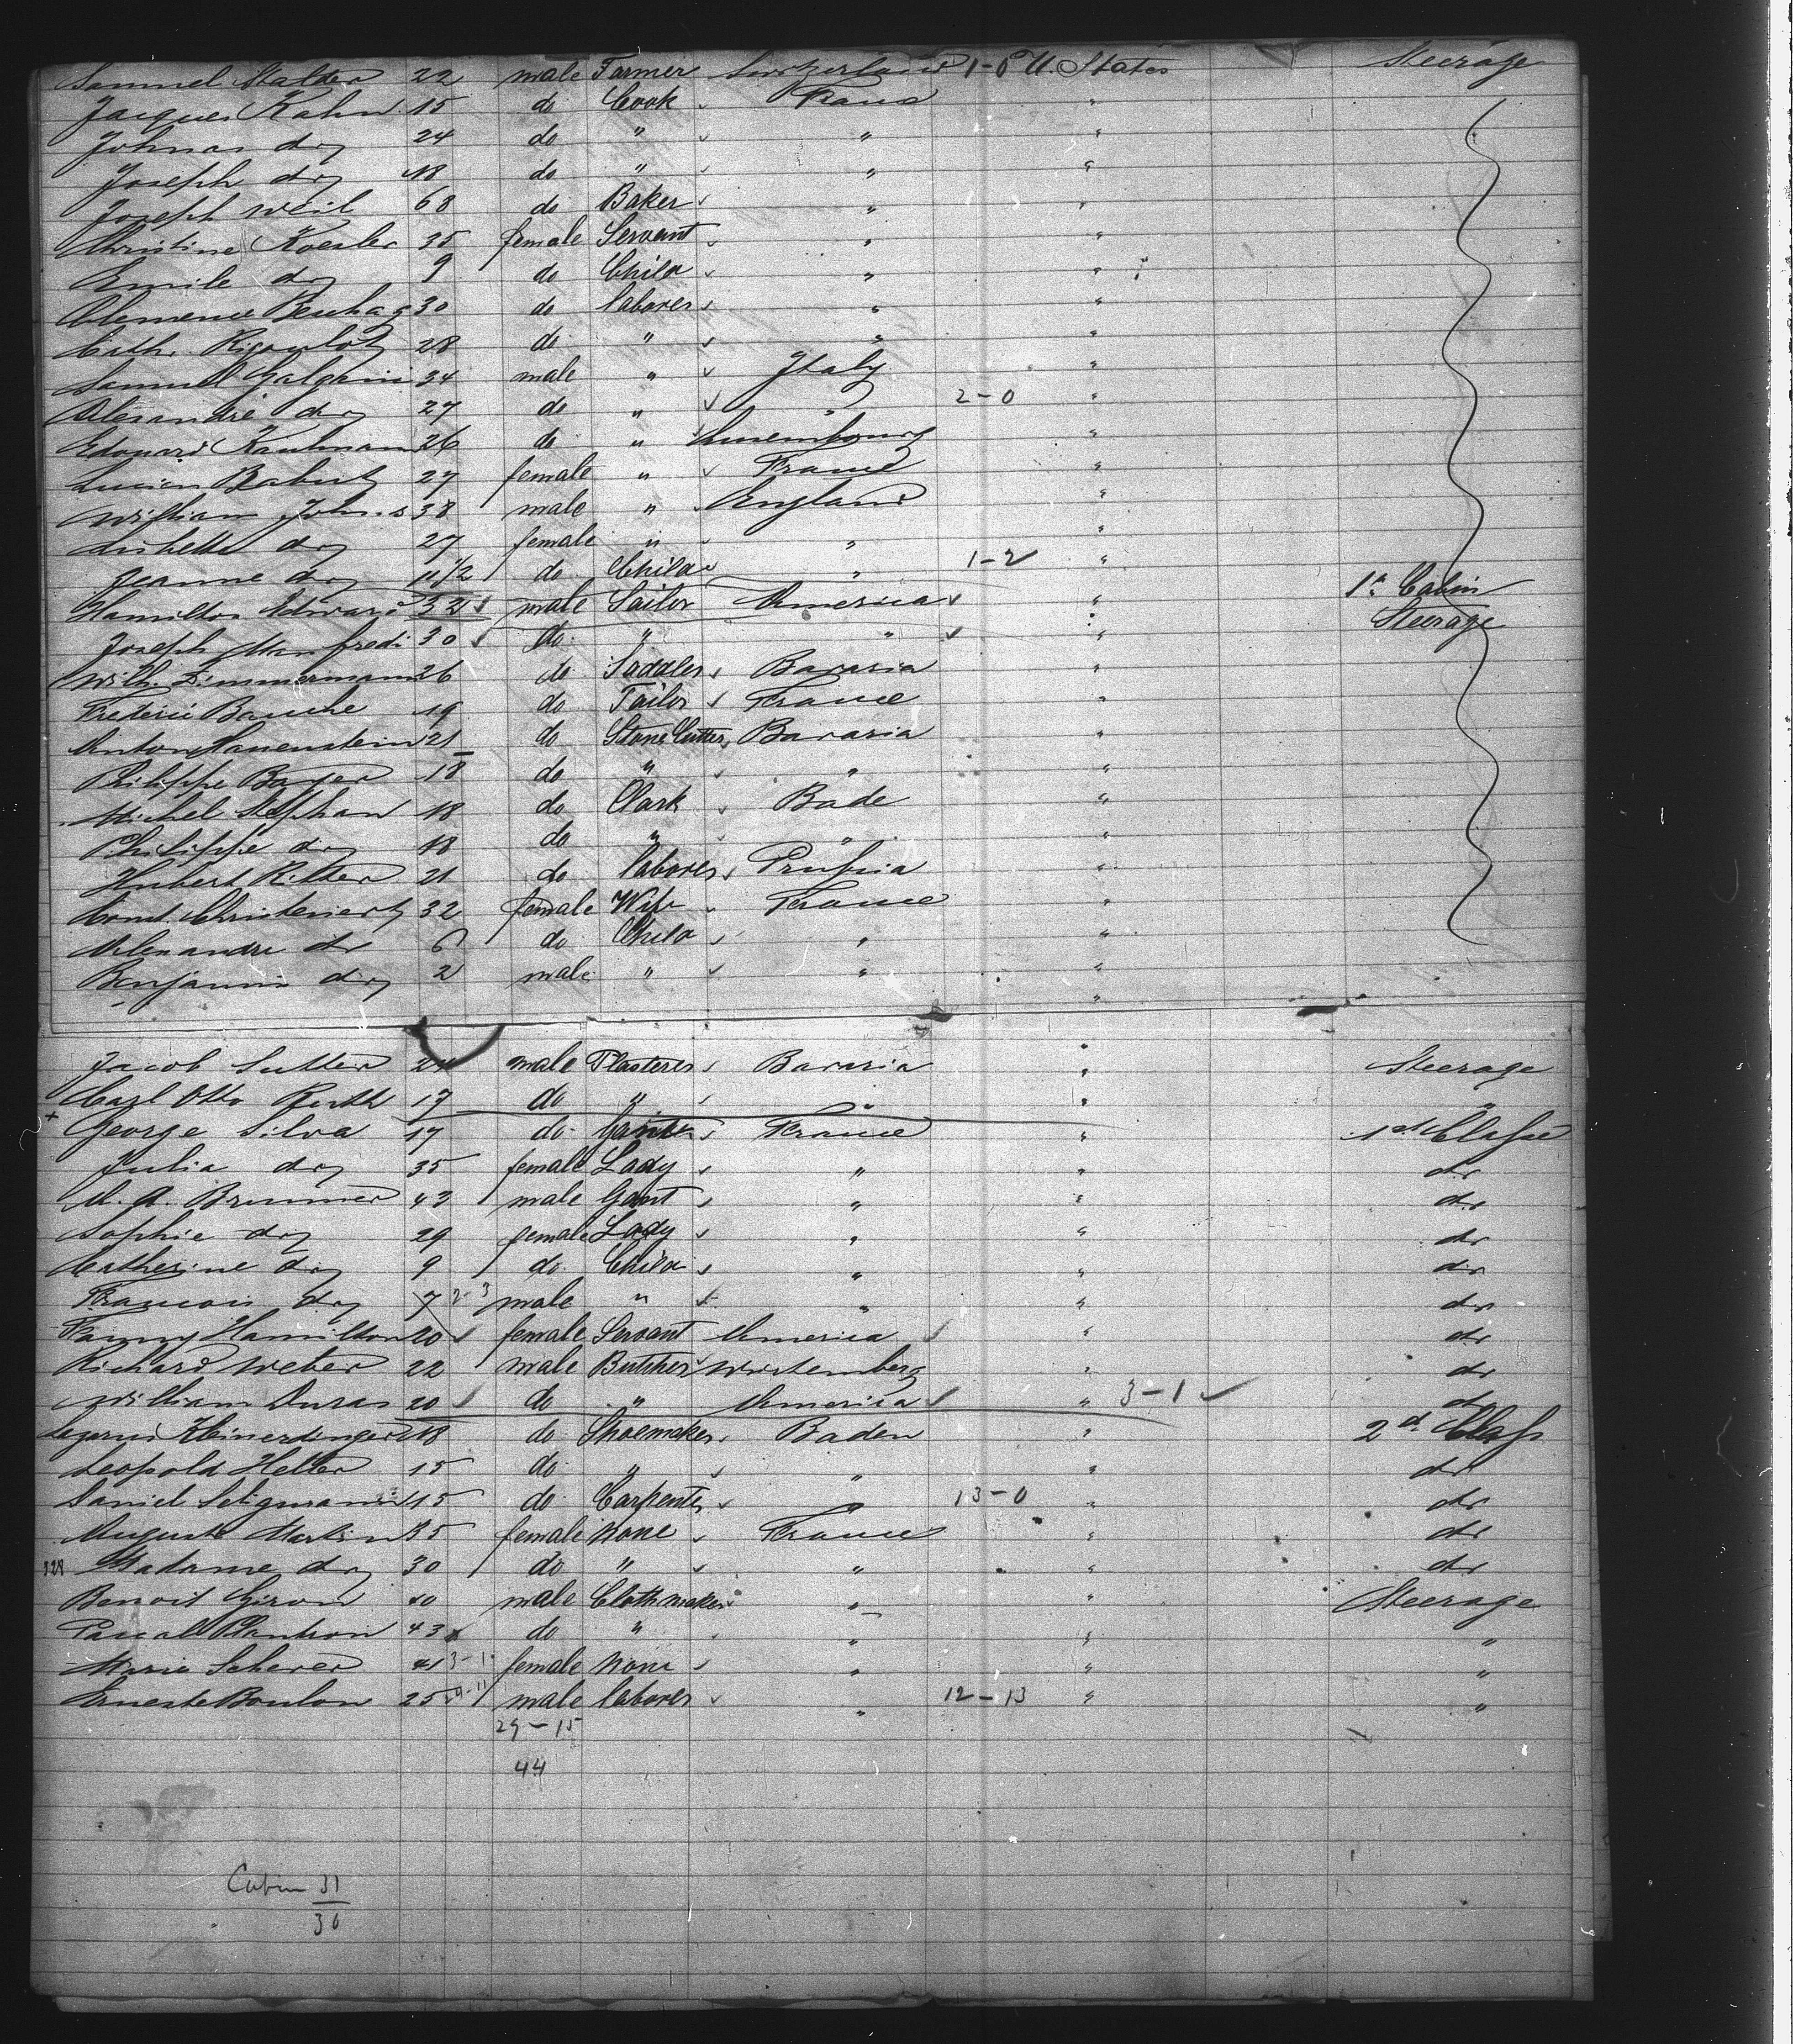 Samuel Stalder 22 male Farmer Switzerland 1-0 U. States Steerage
Jacques Kahn 15 do Cook France "
Johnas do 24 do " " "
Joseph do 18 do " " "
Joseph Weil 68 do Baker " "
Christine Koesler 35 female Servant " "
Emile do 9 do Child " "
Clemence 30 do laborer " "
Cath. Rigoulot 28 do " " "
Samuel Galgani 34 male " Italy "
Alexandre do 27 do " " 2-0 "
Edouard Kaulmann 26 do " Luxembourg "
Lucien 27 female " France "
William Johns 38 male " England "
Lisbette do 27 female " " "
Jeanne do 11/2 do Child " 1-2 "
Hamilton Edward 32 male Sailor America " 1st Cabin
Joseph Manfredi 30 do " " " Steerage
Wilh. Zimmermann 26 do Saddler Bavaria "
Frederic Bauche 19 do Tailor France "
Anton Hauenstein 21 do Stone Cutter Bavaria "
Philippe Bayer 18 do " " "
Michel Stephan 18 do Clark Bade "
Philippe do 18 do " " "
Hubert Ritter 21 do laborer Prussia "
Const. 32 female Wife France "
Alexandre do 6 do Child " "
Benjamin do 2 male " " "
Jacob Sutter 24 male Plasterer Bavaria " Steerage
Carl Otto Ruth 17 do " " " "
+ George Silva 17 do Gant France " 1st Classe
Julia do 35 female Lady " " do
A. A. Brunner 43 male Gant " " do
Sophie do 29 female Lady " " do
Catherine do 9 do Child " " do
Francois do 7 2-3 male " " " do
Fanny Hamilton 20 female Servant America " do
Richard Weber 22 male Butcher Wurtemberg " do
William Duras 20 do " America " 3-1 do
Lazarus Kleinerdinger 18 do Shoemaker Baden " 2d Class
Leopold Heller 15 do " " " do
Daniel Seligmann 15 do Carpenter " 13-0 " do
Auguste Martin 35 female None France " do
328 Madame do 30 do " " " do
Benoit Giron 40 male Cloth maker " " Steerage
Pascal Plantron 43 do " " " "
Marie Scherer 41 3-1 female None " " "
Erneste Boulon 25 29-11 male laborer " 12-13 " "
29-15
44
Cabin 31
30